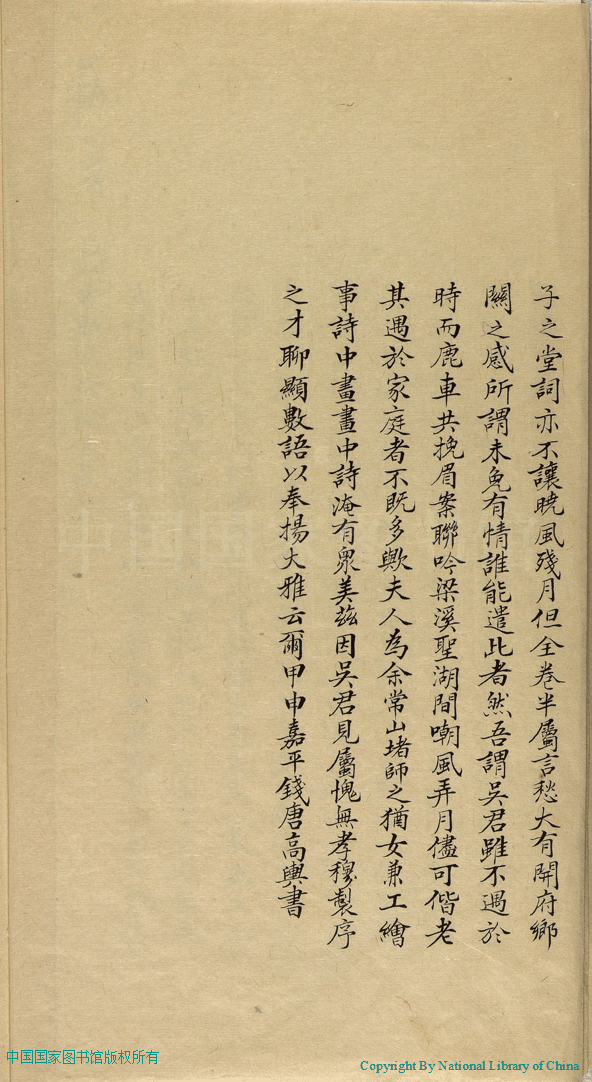 子之堂詞亦不讓曉風殘月但全卷半屬言愁大有開府鄉
關之感所謂未免有情誰能遣此者然吾謂吳君雖不遇於
時而鹿車共挽眉案聯吟梁溪聖湖間嘲風弄月儘可偕老
其遇於家庭者不既多歟夫人為余常山堵師之猶女兼工繪
事詩中畫畫中詩淹有衆美茲因吳君見屬愧無孝穆製序
之才聊顯數語以奉揚大雅云爾甲申嘉平錢唐高輿書
中国国家图书馆版权所有
Copyright By National Library of China